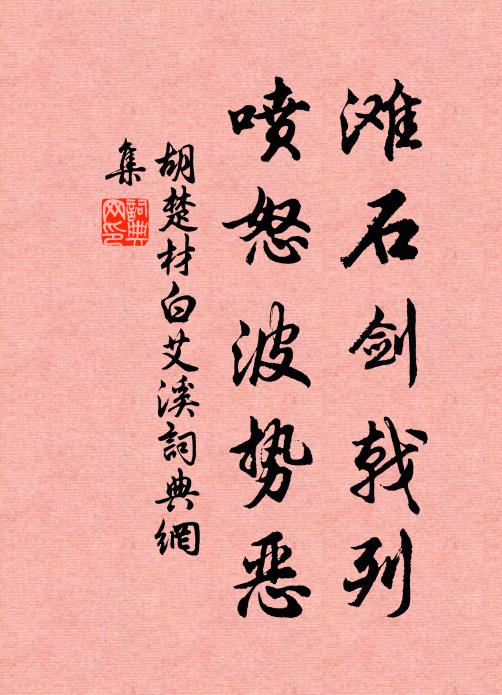 滩石剑戟列
喷怒波势恶
胡楚材白艾溪詞典網
集
詞典网印